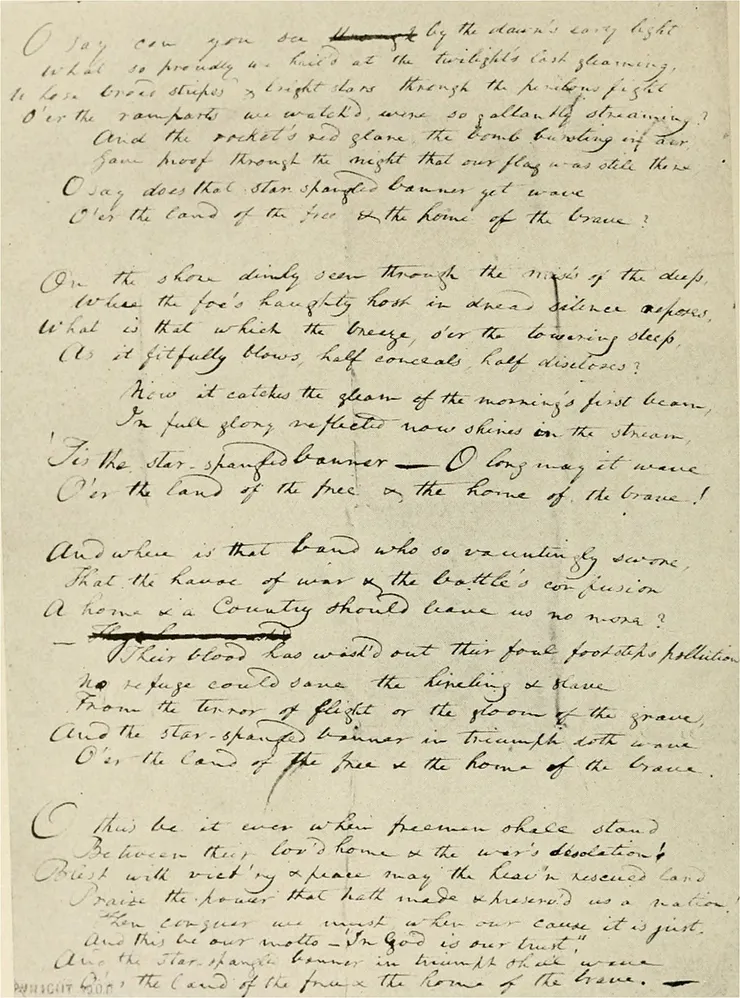 O say can you see ~~through~~ by the dawn's early light
What so proudly we hail'd at the twilight's last gleaming,
Whose broad stripes & bright stars through the perilous fight
O'er the ramparts we watch'd, were so gallantly streaming?
And the rocket's red glare, the bomb bursting in air,
Gave proof through the night that our flag was still there
O say does that star-spangled banner yet wave
O'er the land of the free & the home of the brave?
On the shore dimly seen through the mists of the deep,
Where the foe's haughty host in dread silence reposes,
What is that which the breeze, o'er the towering steep,
As it fitfully blows, half conceals, half discloses?
Now it catches the gleam of the morning's first beam,
In full glory reflected now shines in the stream,
'Tis the star-spangled banner — O long may it wave
O'er the land of the free & the home of the brave!
And where is that band who so vauntingly swore,
That the havoc of war & the battle's confusion
A home & a Country should leave us no more?
—
Their blood has wash'd out their foul footsteps pollution
No refuge could save the hireling & slave
From the terror of flight or the gloom of the grave,
And the star-spangled banner in triumph doth wave
O'er the land of the free & the home of the brave.
O thus be it ever when freemen shall stand
Between their lov'd home & the war's desolation!
Blest with vict'ry & peace may the heav'n rescued land
Praise the power that hath made & preserv'd us a nation!
Then conquer we must when our cause it is just,
And this be our motto — "In God is our trust,"
And the star-spangled banner in triumph shall wave
O'er the land of the free & the home of the brave. —